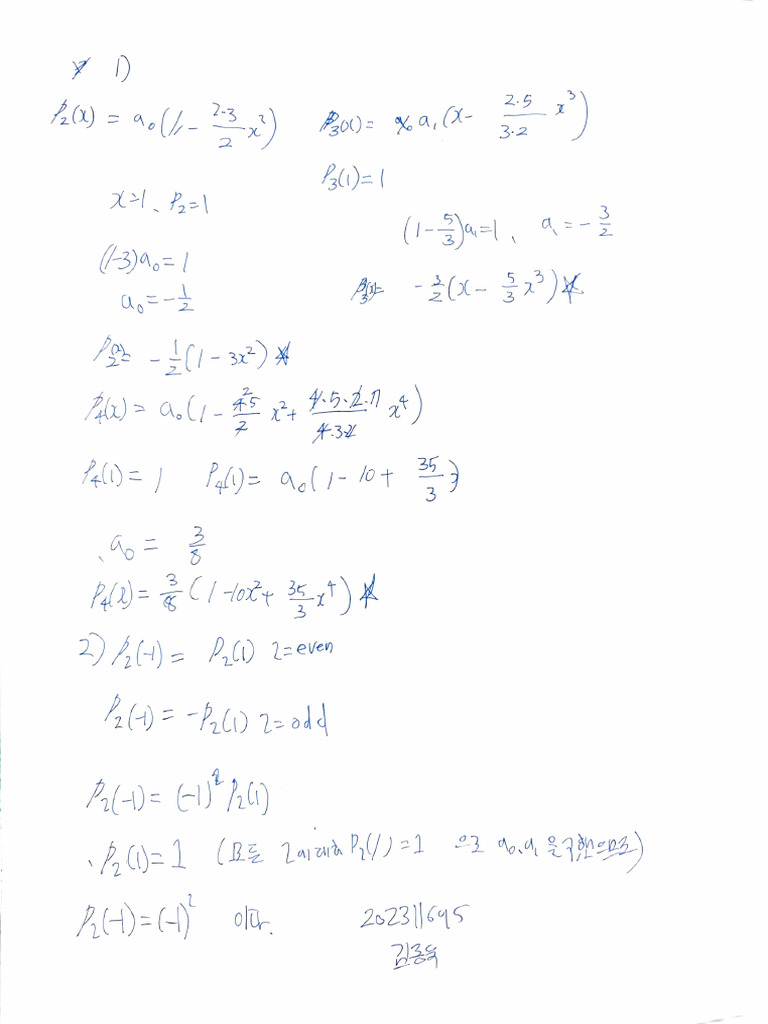 1)
P₂(x) = a₀(1 - \frac{2·3}{2}x²)
P₃(x) = a₁(x - \frac{2·5}{3·2}x³)
P₃(1) = 1
x=1、P₂=1
(1-\frac{5}{3})a₁=1、 a₁ = -\frac{3}{2}
(1-3)a₀ = 1
a₀ = -\frac{1}{2}
P₃(x)= -\frac{3}{2}(x - \frac{5}{3}x³)
P₂(x)= -\frac{1}{2}(1 - 3x²)
P₄(x) = a₀(1 - \frac{4·5}{2}x² + \frac{4·5·2·7}{4·3·2}x⁴)
P₄(1) = 1 P₄(1) = a₀(1 - 10 + \frac{35}{3})
a₀ = \frac{3}{8}
P₄(x) = \frac{3}{8}(1 - 10x² + \frac{35}{3}x⁴)
2) P_l(-1) = P_l(1) l=even
P_l(-1) = -P_l(1) l=odd
P_l(-1) = (-1)^l P_l(1)
P_l(1) = 1 (모든 l에 대해 P_l(1)=1 으로 a₀, a₁ 을 구했으므로)
P_l(-1) = (-1)^l 이다.
202311695
김종욱